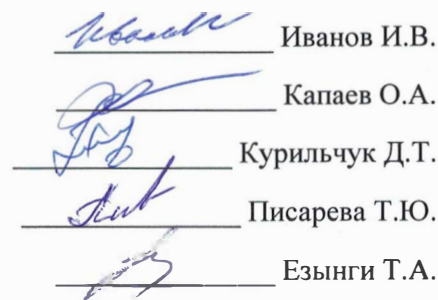 Иванов И.В.
Капаев О.А.
Курильчук Д.Т.
Писарева Т.Ю.
Езынги Т.А.